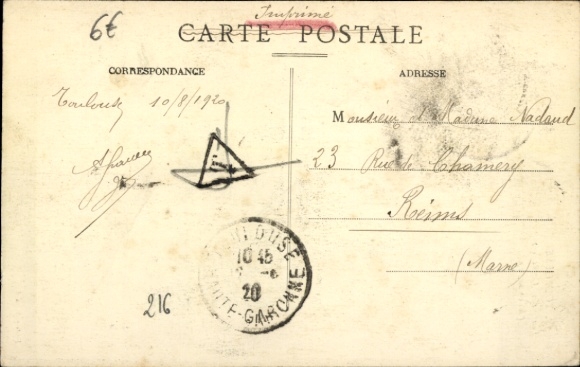 6€
Imprimé
CARTE POSTALE
CORRESPONDANCE
ADRESSE
Toulouse 10/8/1920
Monsieur et Madame Nadaud
23 Rue de Chamery
Reims
(Marne)
TOULOUSE
10 45
20
HAUTE-GARONNE
216